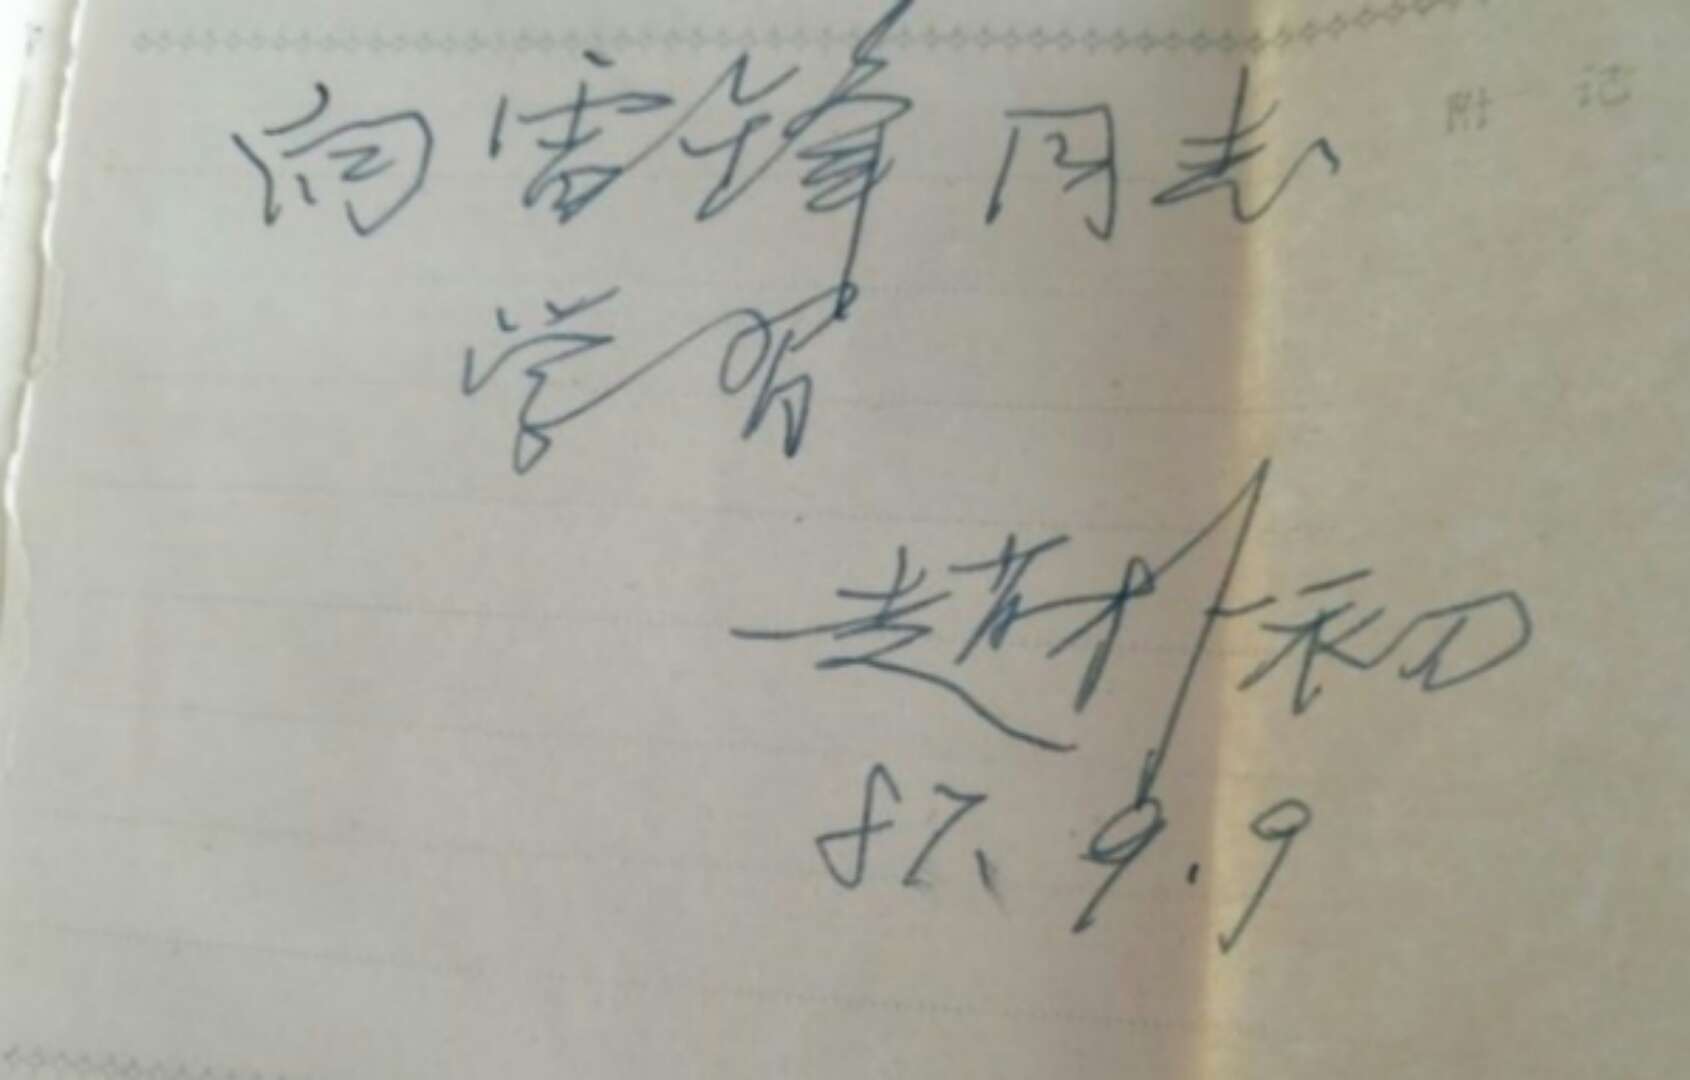 附 记
向雷锋同志
学习
赵朴初
87、9.9